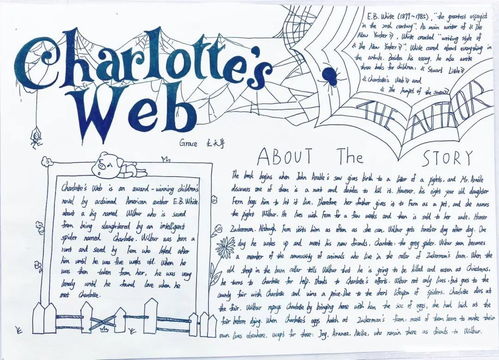 Charlotte's
Web
Grace
E.B. White (1899-1985), "the greatest essayist
in the 20th century". As main writer of «The
New Yorker», White created "writing style of
«The New Yorker»". White cared about everything in
the article. Besides his essay, he also wrote
three books for children:
« Stuart Little»
« Charlotte's Web» and
« The trumpet of the swan»
THE AUTHOR
Charlotte's Web is an award-winning children's
novel by acclaimed American author E.B. White
about a pig named Wilbur who is saved
from being slaughtered by an intelligent
spider named Charlotte. Wilbur was born a
runt and saved by Fern who bottled after
him until he was five weeks old. When he
was then taken from her, he was very
lonely until he found love when he
met Charlotte.
ABOUT The STORY
The book begins when John Arable's sow gives birth to a litter of piglets, and Mr. Arable
discovers one of them is a runt and decides to kill it. However, his eight year old daughter
Fern begs him to let it live. Therefore her father gives it to Fern as a pet, and she names
the piglet Wilbur. He lives with Fern for a few weeks and then is sold to her uncle, Homer
Zuckerman. Although Fern visits him as often as she can, Wilbur gets lonelier day after day. One
day he wakes up and meets his new friend, Charlotte, the grey spider. Wilbur soon becomes
a member of the community of animals who live in the cellar of Zuckerman's barn. When the
old sheep in the barn cellar tells Wilbur that he is going to be killed and eaten at Christmas,
he turns to Charlotte for help. Thanks to Charlotte's efforts, Wilbur not only lives, but goes to the
county fair with Charlotte and wins a prize. Due to the short lifespan of spiders, Charlotte dies at
the fair. Wilbur repays Charlotte by bringing home with him the sac of eggs she had laid at the
fair before dying. When Charlotte's eggs hatch at Zuckerman's farm, most of them leave to make their
own lives elsewhere, except for three: Joy, Aranea, Nellie, who remain there as friends to Wilbur.